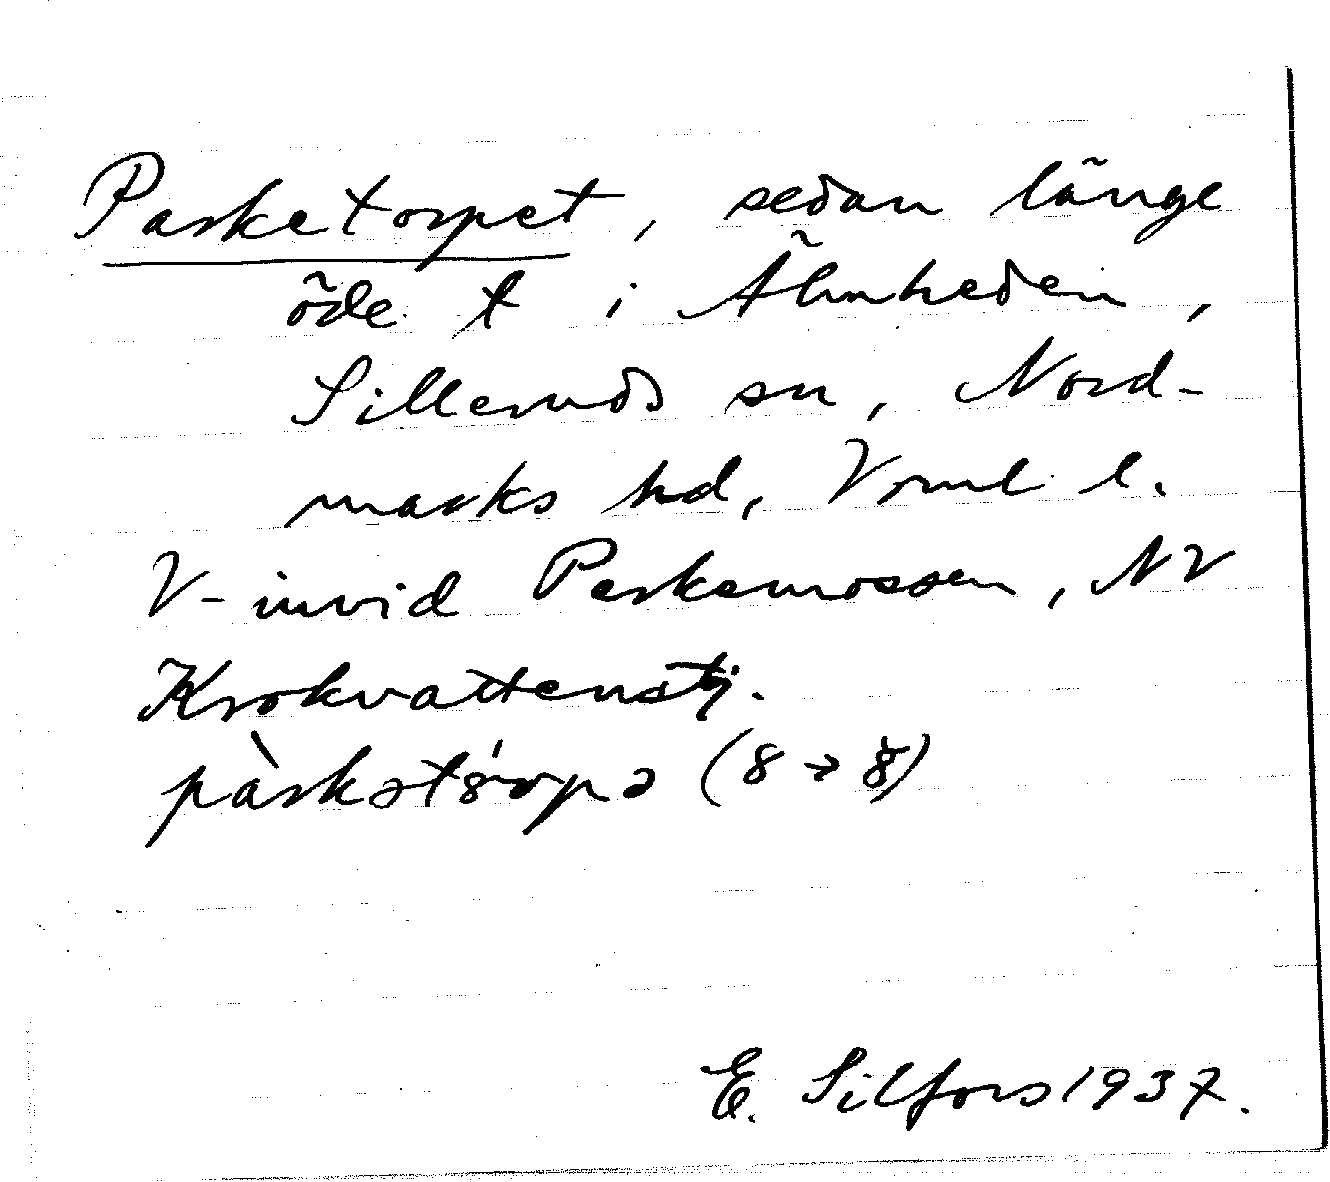 Parketorpet, sedan länge
öde t i Älmheden,
Silleruds sn, Nord-
marks hd, Vrml l.
V-invid Perkemossen, NV
Krokvattenstj.
pàrkətȣ́rpə (ȣ → ȣ̇)
E. Silfors 1937.